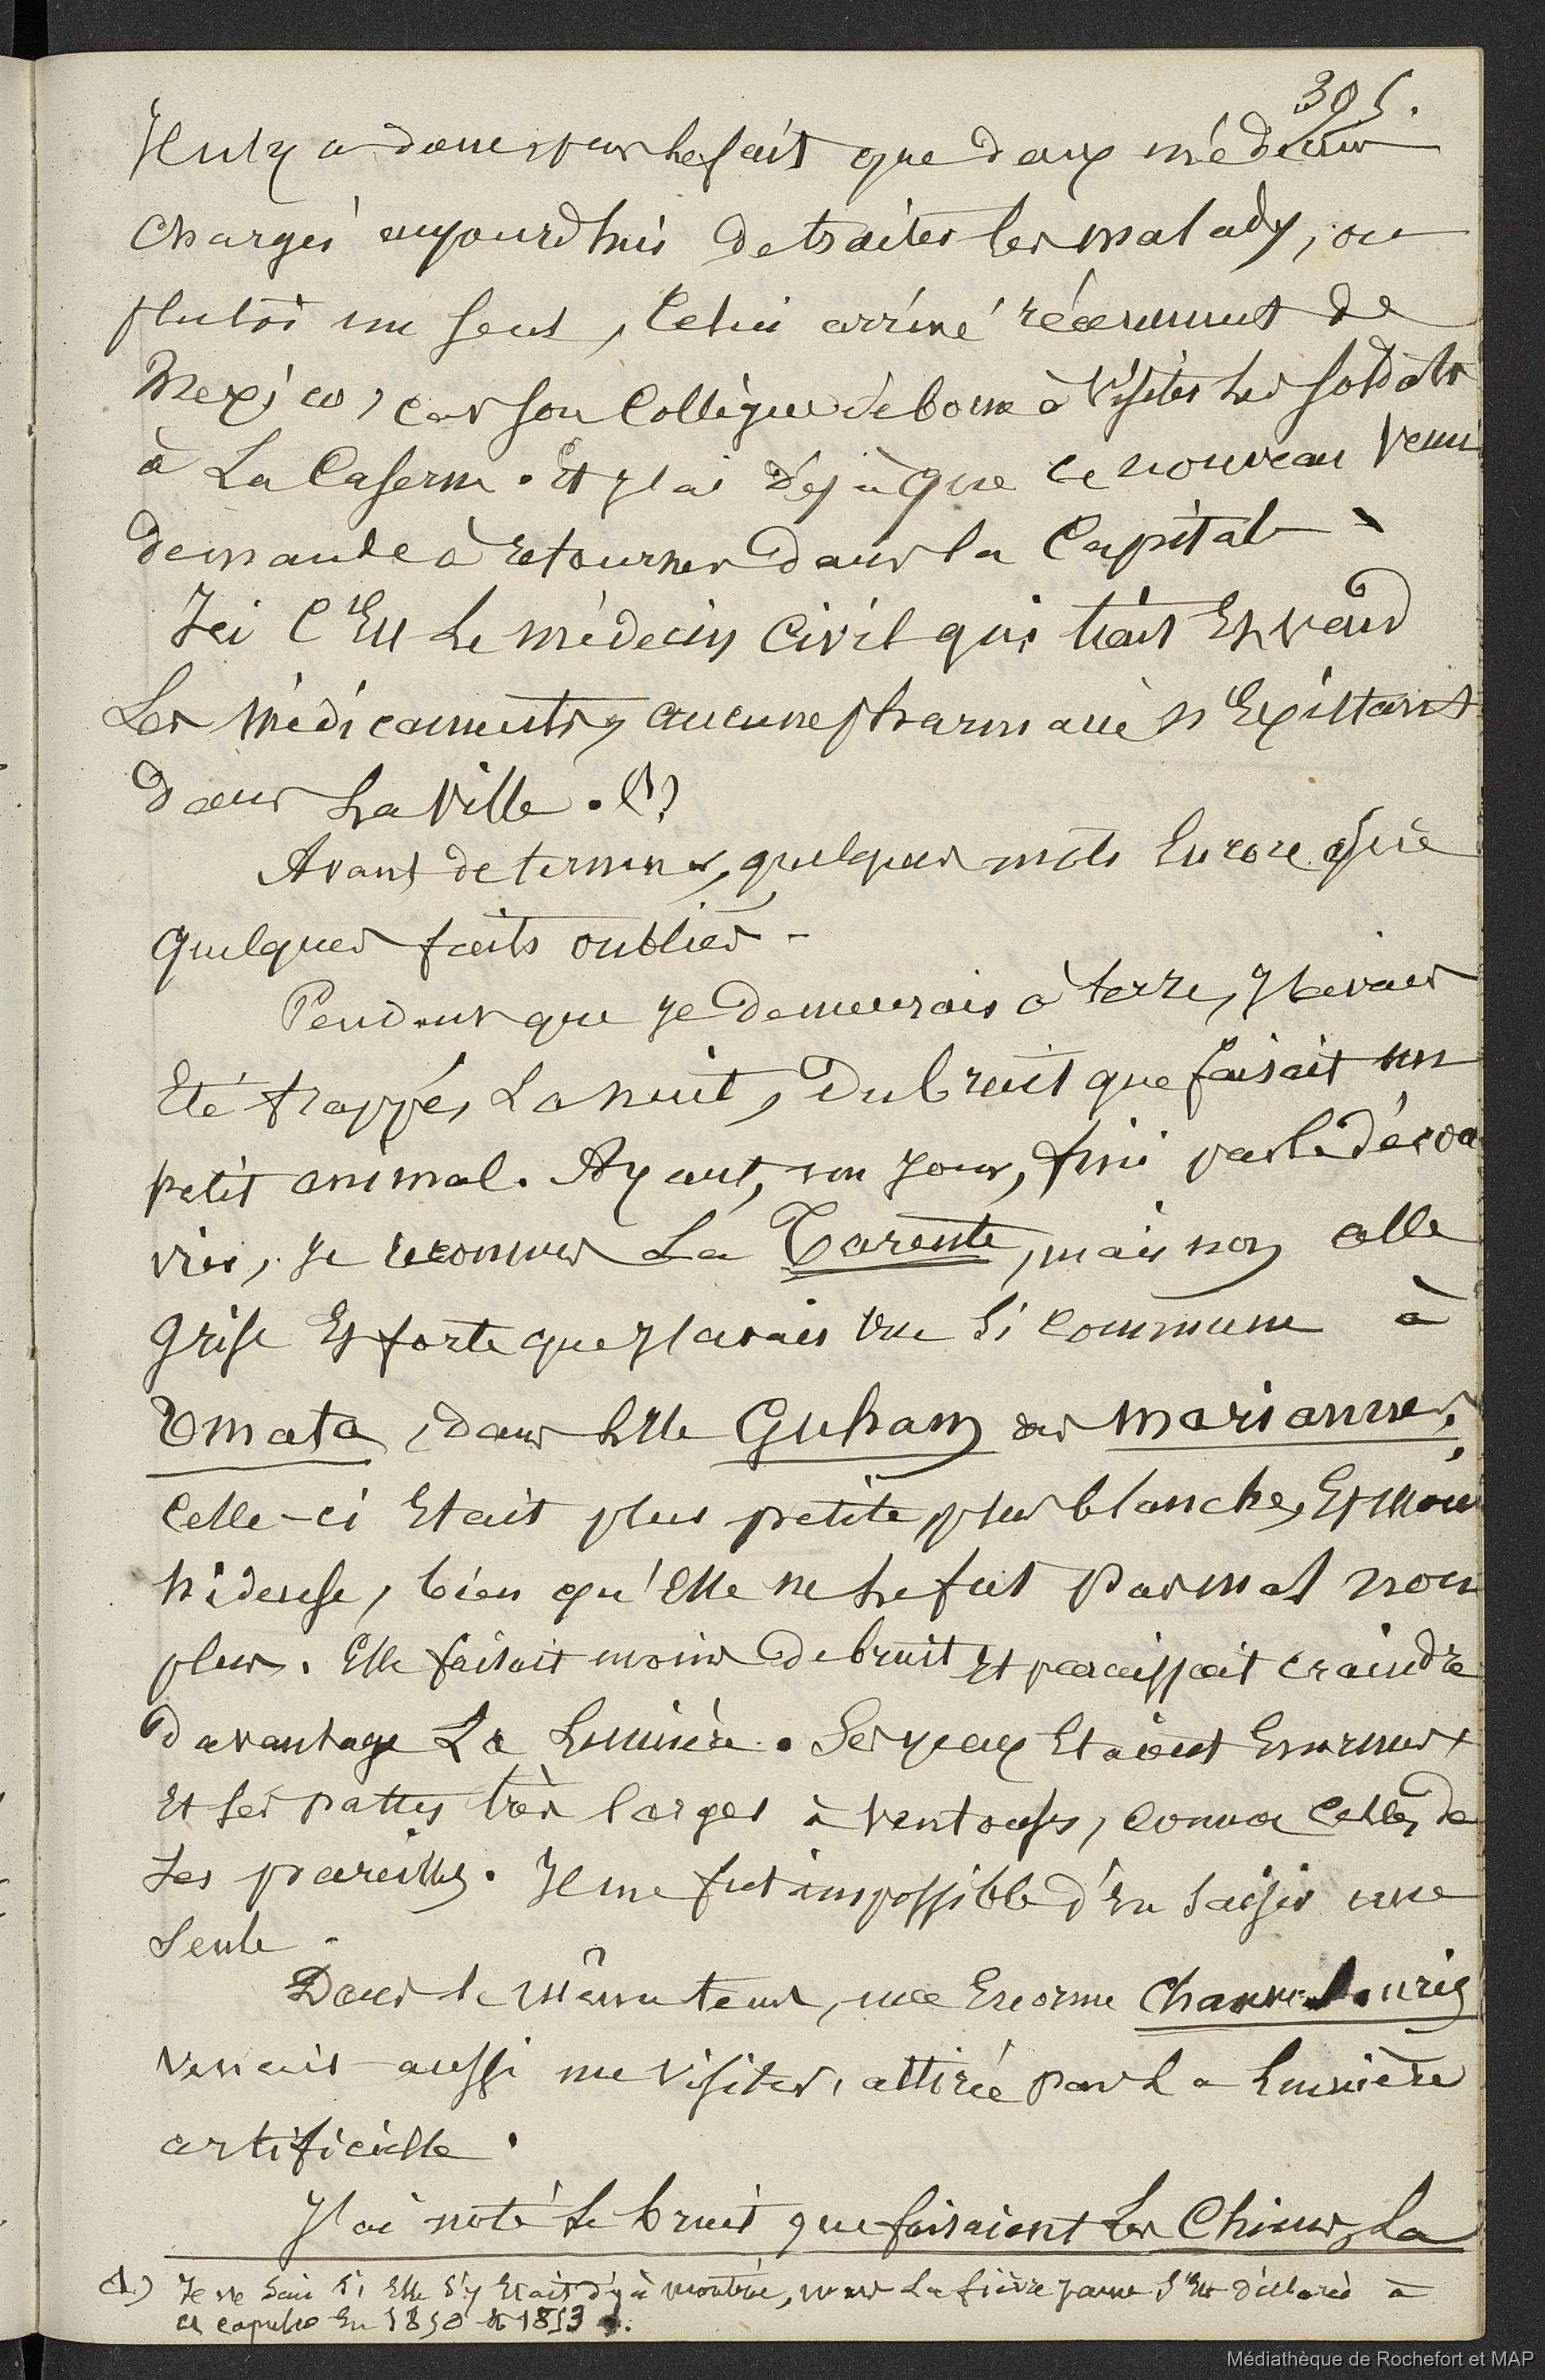 305.
Il n'y a donc par le fait que deux médecins
chargés aujourd'hui de traiter les malades, ou
plutôt un seul, celui arrivé récemment de
Mexico, car son collègue se borne à visiter les soldats
à la caserne. Et j'ai déjà que ce nouveau venu
demande à retourner dans la capitale.
Ici c'est le médecin civil qui traite et vend
les médicaments, aucune pharmacie n'existant
dans la ville. (1)
Avant de terminer, quelques mots encore sur
quelques faits oubliés -
Pendant que je demeurais à terre, j'avais
été frappé, la nuit, du bruit que faisait un
petit animal. Ayant, un jour, fini par le décou
vrir, je reconnus la Tarente, mais non celle
grise et forte que j'avais vue si commune à
Umata, dans l'île Guham des mariannes,
Celle-ci était plus petite plus blanche, et moins
hideuse, bien qu'elle ne le fut pas mal non
plus. Elle faisait moins de bruit et paraissait craindre
davantage la lumière. Ses yeux étaient énormes
et ses pattes très larges à ventouses, comme celles de
ses pareilles. Il me fut impossible d'en saisir une
seule.
Dans le même tems, une énorme chauve souris
venait aussi me visiter, attirée par la lumière
artificielle.
J'ai noté le bruit que faisaient les chiens, la
(1) Je ne sais si elle s'y était déjà montrée, mais la fièvre jaune s'est déclarée à
en 1850 et 1853.